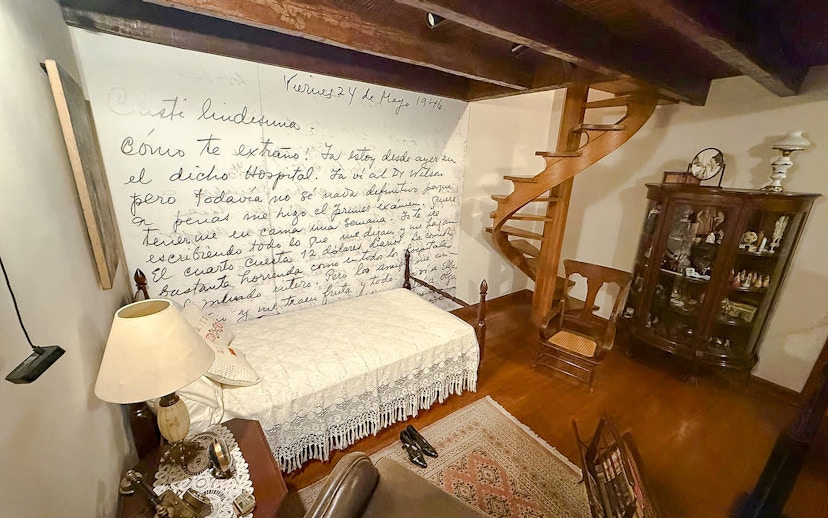 Viernes 24 de Mayo 1946.
Cristi lindisima -
Cómo te extraño! Ya estoy desde ayer en
el dicho Hospital. Ya vi al Dr Wilson
pero todavía no sé nada definitivo porque
a penas me hizo el primer exámen. Quiere
tenerme en cama una semana. Yo te iré
escribiendo todo lo que me digan y me hagan.
El cuarto cuesta 12 dólares diarios, la comida
bastante horrenda como en todo los hospitales
del mundo entero. Pero los amigos
y me traen fruta y todo